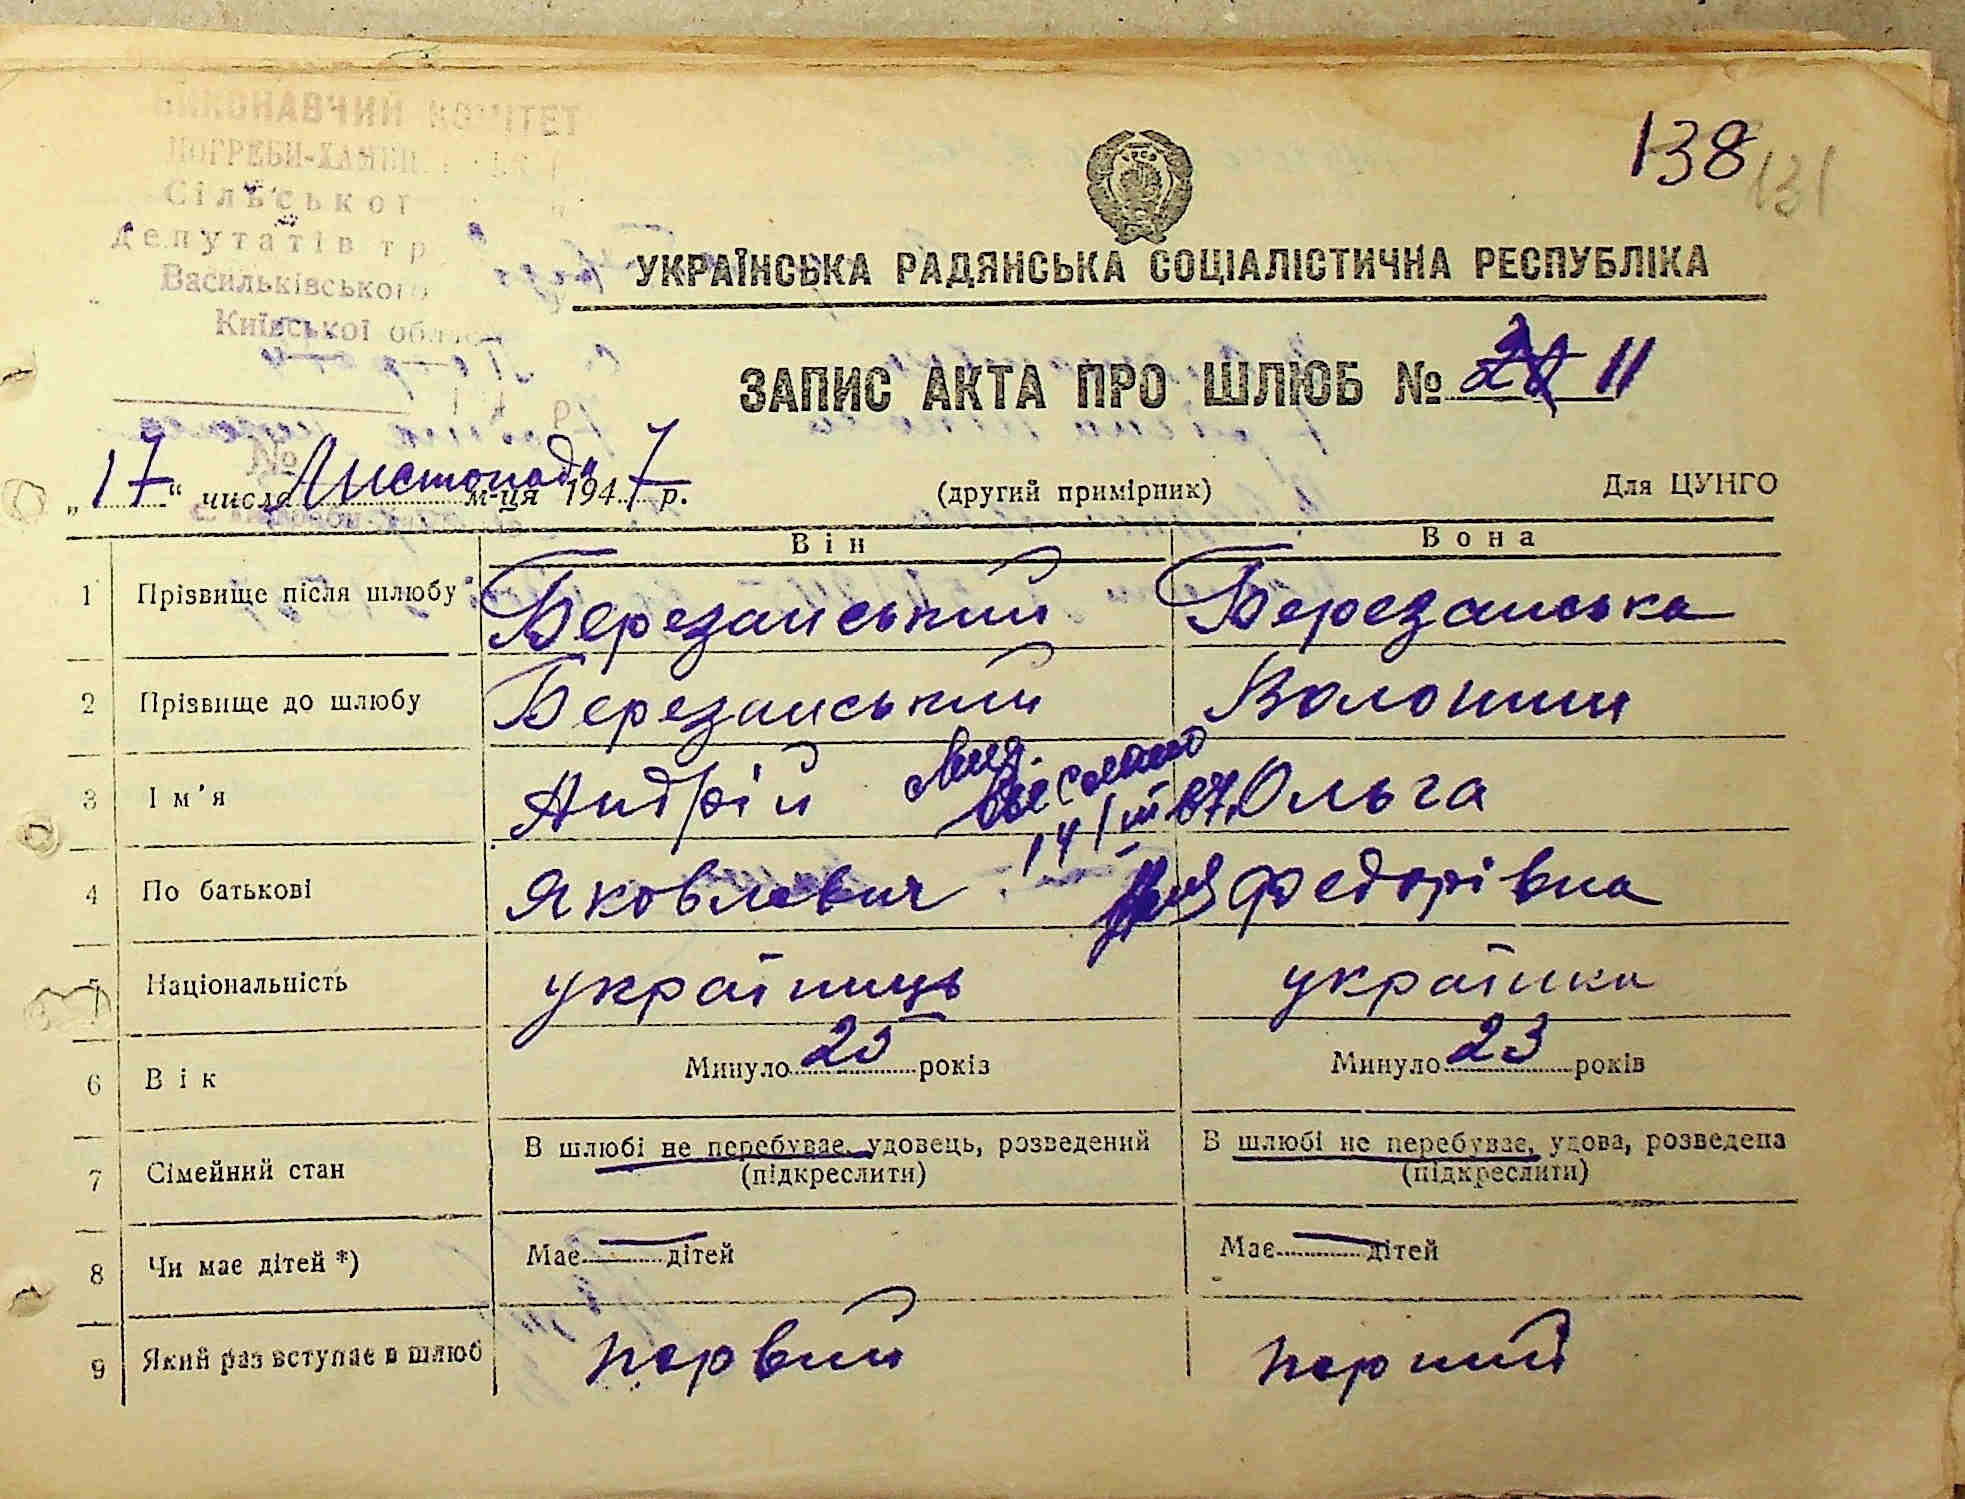 ВИКОНАВЧИЙ КОМІТЕТ
138
131
Сільської
депутатів тр
Васильківського
Київської област
УКРАЇНСЬКА РАДЯНСЬКА СОЦІАЛІСТИЧНА РЕСПУБЛІКА
ЗАПИС АКТА ПРО ШЛЮБ № 11
№
„17“ числа Листопада м-ця 1947 р. (другий примірник) Для ЦУНГО
Він Вона
1 Прізвище після шлюбу Березанський Березанська
2 Прізвище до шлюбу Березанський Волошин
3 Ім'я Андрій Ольга
4 По батькові Яковлевич Федорівна
5 Національність українець українка
6 Вік Минуло 25 років Минуло 23 років
7 Сімейний стан В шлюбі не перебуває, удовець, розведений В шлюбі не перебуває, удова, розведена
(підкреслити) (підкреслити)
8 Чи має дітей *) Має — дітей Має — дітей
9 Який раз вступає в шлюб первий перший